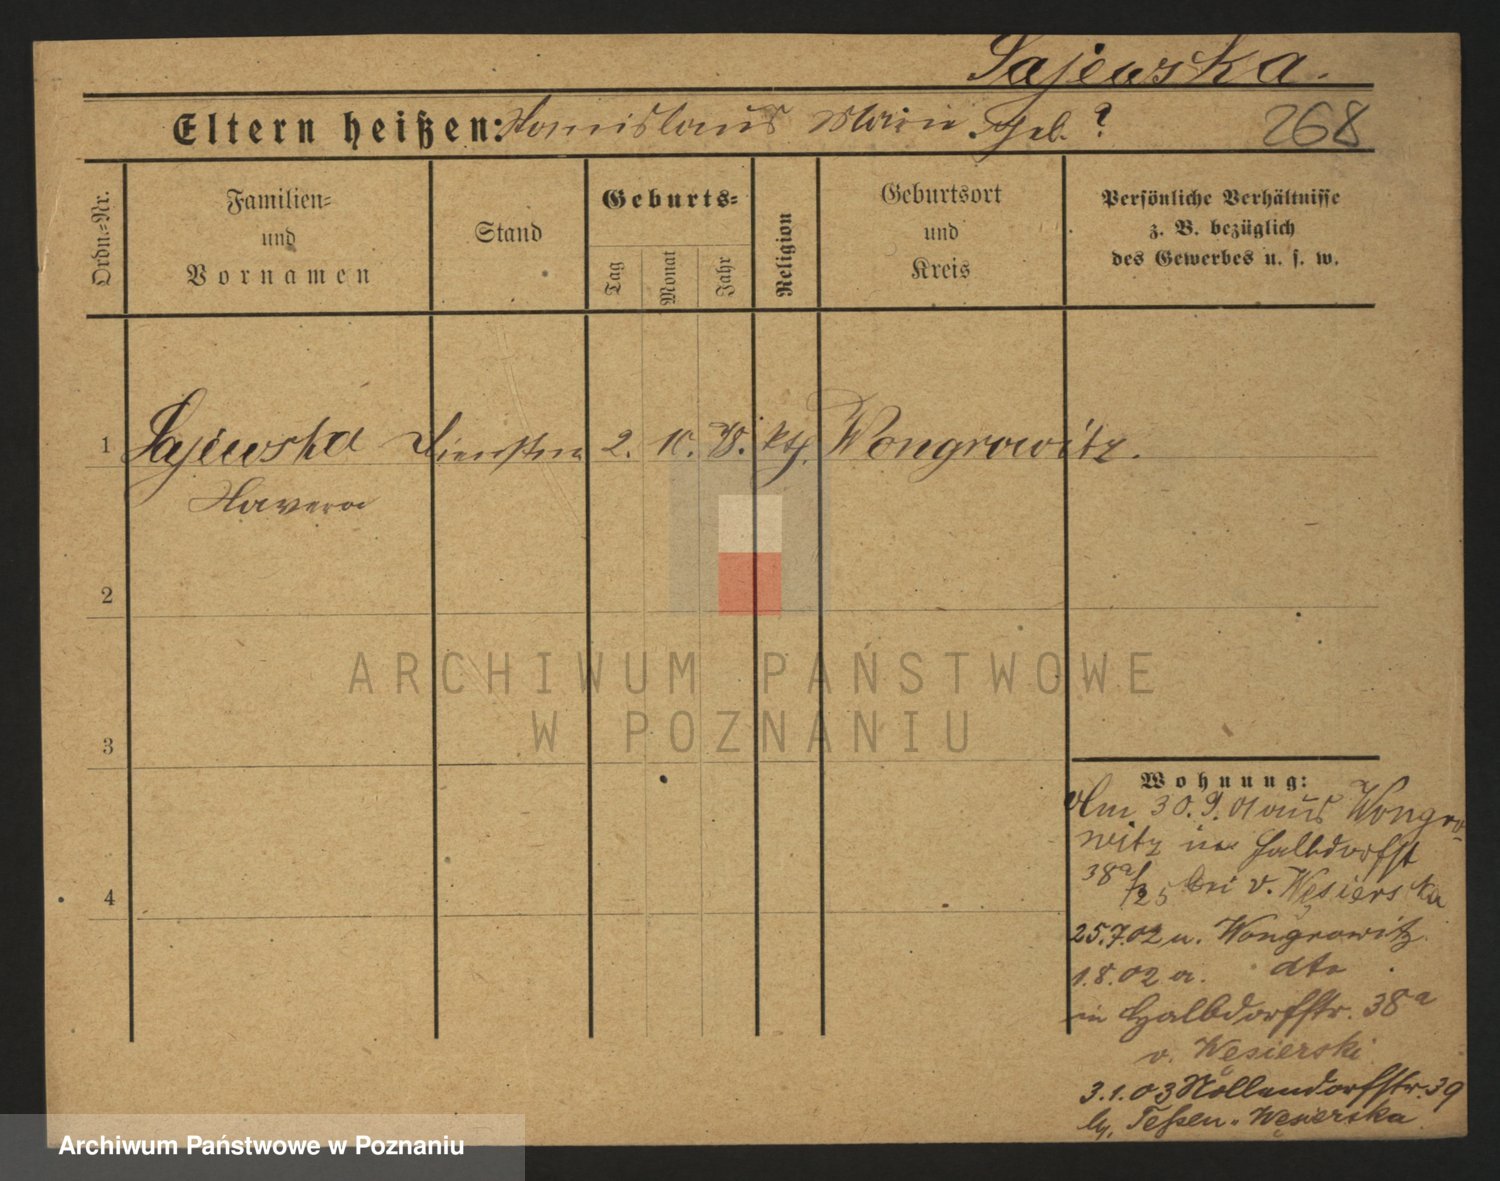 Sajewska.
Eltern heißen: Stanislaus Marie geb. ?
268
Ordn.=Nr.
Familien=
und
Vornamen
Stand
Geburts=
Tag
Monat
Jahr
Religion
Geburtsort
und
Kreis
Persönliche Verhältnisse
z. B. bezüglich
des Gewerbes u. s. w.
1 Sajewska 2. 10. 78. kth. Wongrowitz.
2
3
4
Wohnung:
Am 30.9.01 aus Wongro-
witz in Halbdorfst
38a/25 bei v. Węsierska
25.7.02 n. Wongrowitz
1.8.02 a. dto
in Halbdorfstr. 38a
v. Węsierski
3.1.03 Nollendorfstr. 39
Teßen-Węsierska
ARCHIWUM PAŃSTWOWE
W POZNANIU
Archiwum Państwowe w Poznaniu